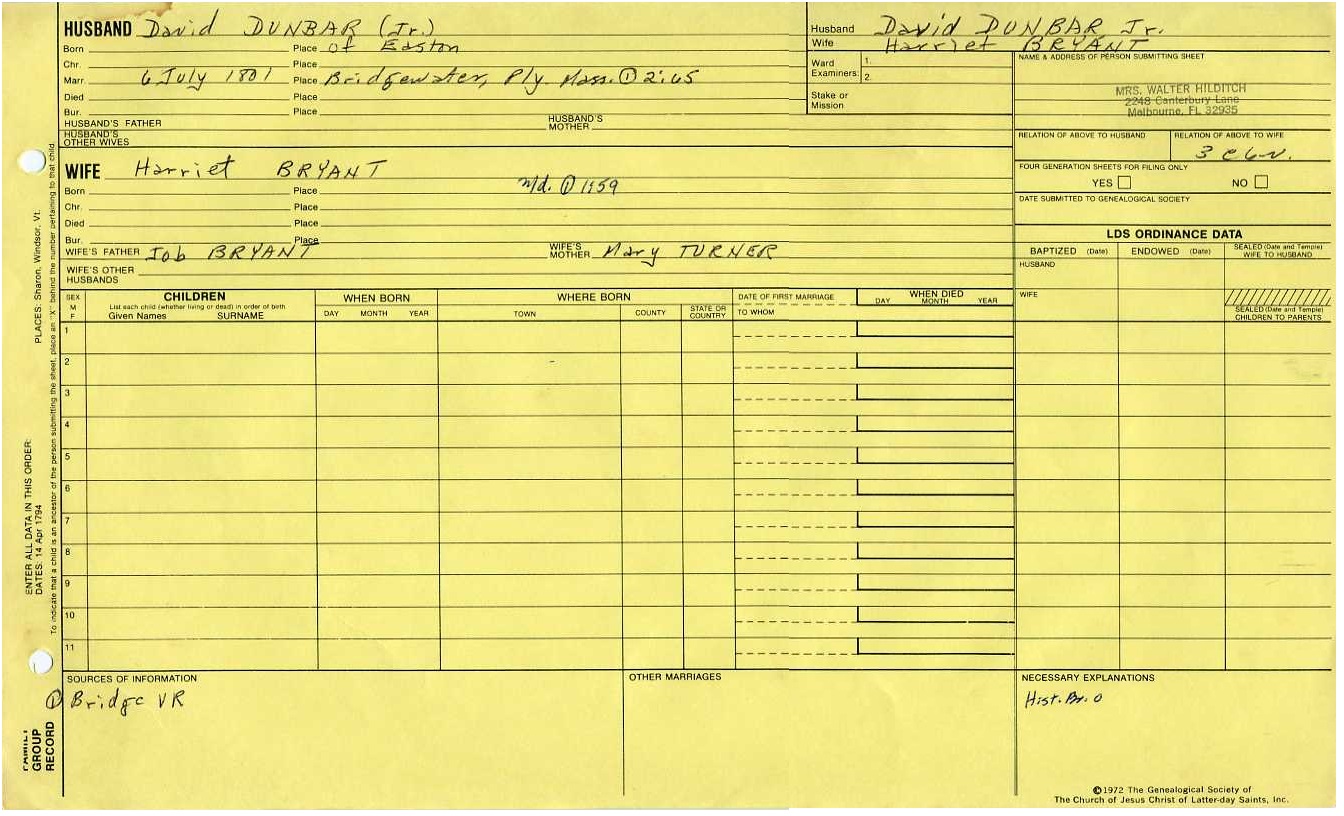 HUSBAND David DUNBAR (Jr.)
Born Place of Easton
Chr. Place
Marr. 6 July 1801 Place Bridgewater, Ply Mass. ① 2:65
Died Place
Bur. Place
HUSBAND'S FATHER HUSBAND'S MOTHER
HUSBAND'S OTHER WIVES
Husband David DUNBAR Jr.
Wife Harriet BRYANT
Ward Examiners: 1. 2.
Stake or Mission
NAME & ADDRESS OF PERSON SUBMITTING SHEET
MRS. WALTER HILDITCH
2248 Canterbury Lane
Melbourne, FL 32935
RELATION OF ABOVE TO HUSBAND RELATION OF ABOVE TO WIFE
3
FOUR GENERATION SHEETS FOR FILING ONLY
YES NO
DATE SUBMITTED TO GENEALOGICAL SOCIETY
WIFE Harriet BRYANT
Born Place ① 1959
Chr. Place
Died Place
Bur. Place
WIFE'S FATHER Job BRYANT WIFE'S MOTHER Mary TURNER
WIFE'S OTHER HUSBANDS
LDS ORDINANCE DATA
BAPTIZED (Date) ENDOWED (Date) SEALED (Date and Temple) WIFE TO HUSBAND
HUSBAND
WIFE
SEALED (Date and Temple) CHILDREN TO PARENTS
SEX M F
CHILDREN
List each child (whether living or dead) in order of birth
Given Names SURNAME
WHEN BORN
DAY MONTH YEAR
WHERE BORN
TOWN COUNTY STATE OR COUNTRY
DATE OF FIRST MARRIAGE
TO WHOM
WHEN DIED
DAY MONTH YEAR
1
2
3
4
5
6
7
8
9
10
11
SOURCES OF INFORMATION
① Bridge VR
OTHER MARRIAGES
NECESSARY EXPLANATIONS
Hist. Br. 0
©1972 The Genealogical Society of
The Church of Jesus Christ of Latter-day Saints, Inc.
PLACES: Sharon, Windsor, Vt.
ENTER ALL DATA IN THIS ORDER:
DATES: 14 Apr 1794
To indicate that a child is an ancestor of the person submitting the sheet, place an "X" behind the number pertaining to that child.
FAMILY GROUP RECORD